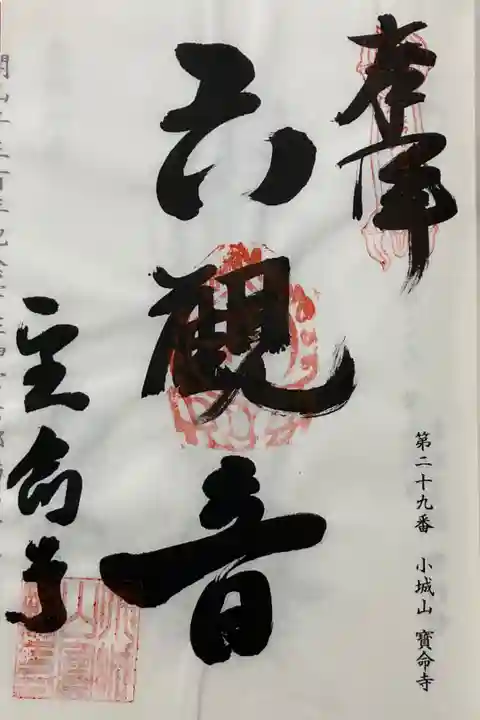 奉拝
第二十九番 小城山 寶命寺
六観音
宝命寺